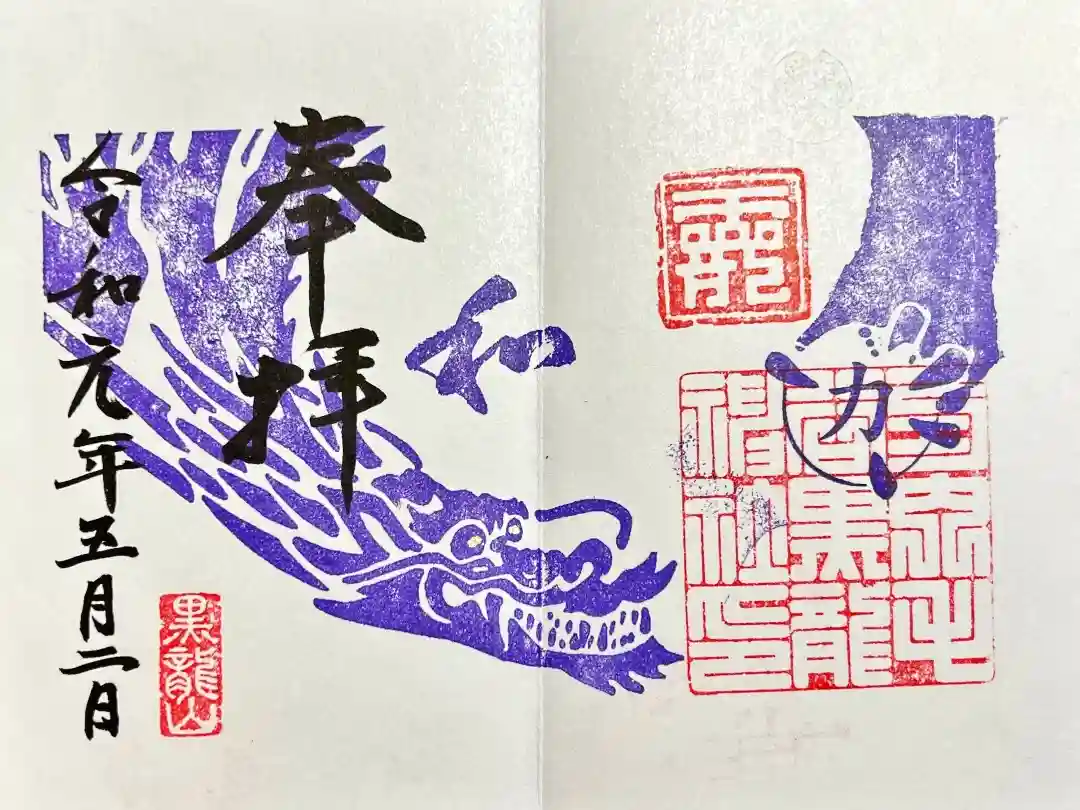 力
黒龍
神社印
和
奉拝
令和元年五月二日
黒龍山